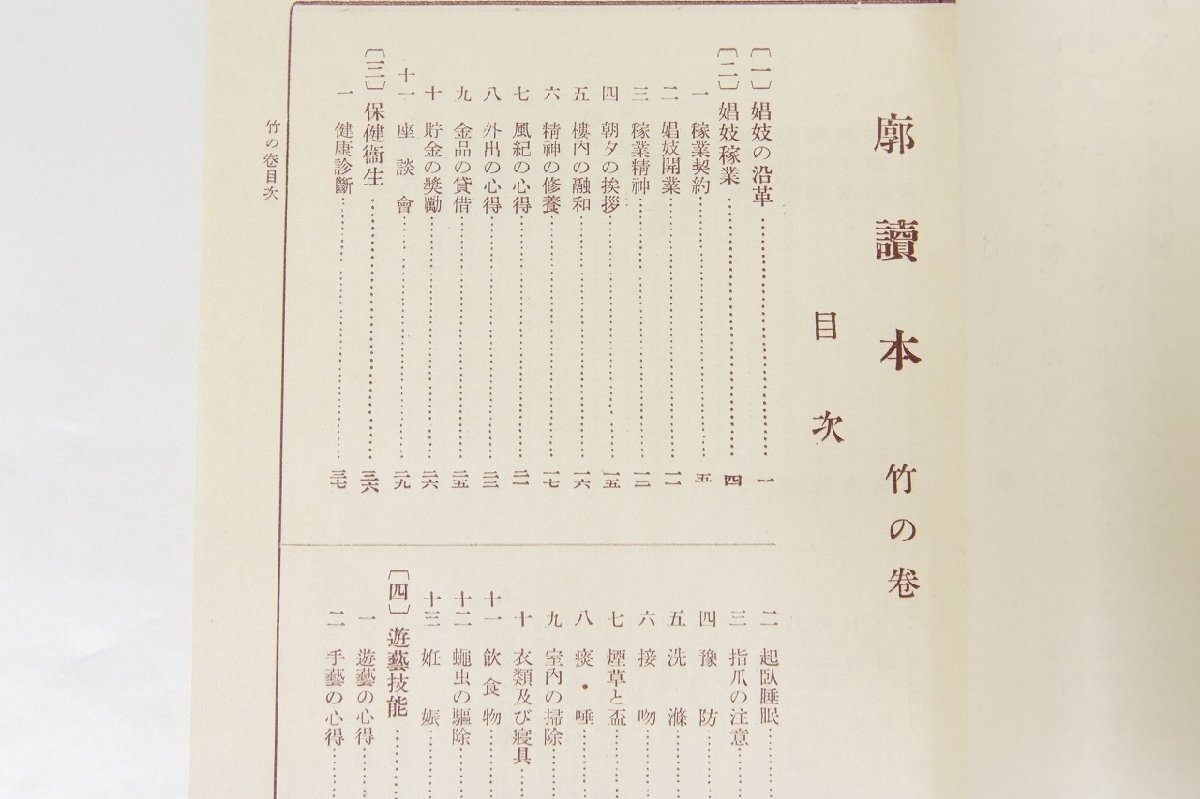 廓讀本 竹の卷
目次
〔一〕 娼妓の沿革……一
〔二〕 娼妓稼業……四
一 稼業契約……五
二 娼妓開業……一一
三 稼業精神……一二
四 朝夕の挨拶……一五
五 樓內の融和……一六
六 精神の修養……一七
七 風紀の心得……二一
八 外出の心得……二三
九 金品の貸借……二五
十 貯金の奬勵……二六
十一 座談會……二九
〔三〕 保健衞生……三六
一 健康診斷……三七
二 起臥睡眠……
三 指爪の注意……
四 豫防……
五 洗滌……
六 接吻……
七 煙草と盃……
八 痰・唾……
九 室內の掃除……
十 衣類及び寢具……
十一 飮食物……
十二 蠅虫の驅除……
十三 姙娠……
〔四〕 遊藝技能……
一 遊藝の心得……
二 手藝の心得……
竹の卷目次